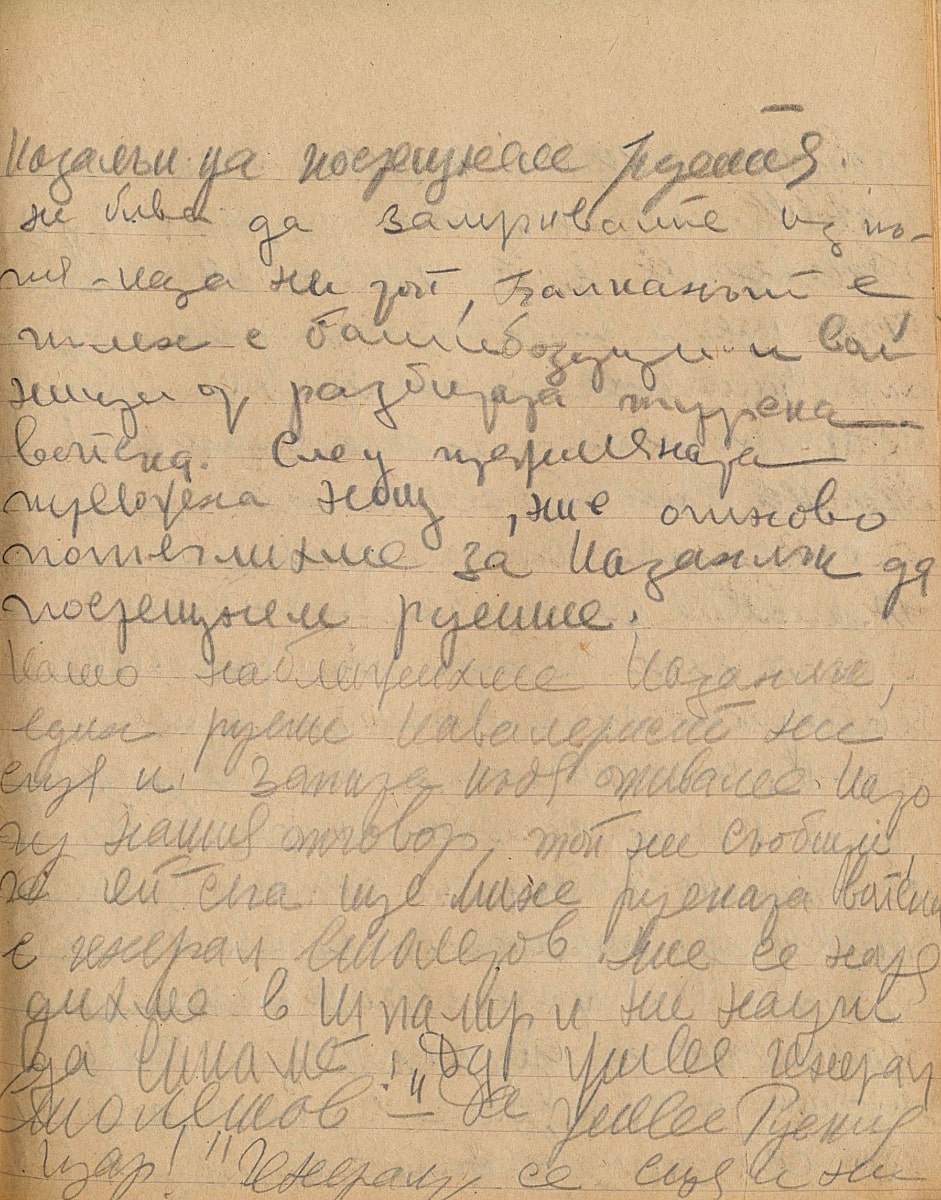 Казалък да посрещнеме русите.
не бива да замръквайте из по-
тя - каза ни той, Балканът е
пълен с башибозуци и вой
ници от разбитата турска
войска. След прекараната
тревожна нощ, ние отново
потеглихме за Казанлък да
посрещнем русите.
Като наближихме Казанлък,
един руски кавалерист ни
спря и запита къде отиваме. Като
чу нашия отговор, той ни съобщи
че ей сега ще мине руската войска
с генерал Столетов. Ние се наре
дихме в шпалир и ни научи
да викаме: „Да живее генерал
Столетов" – „Да живее Руския
цар!" Генералът се спря и ни